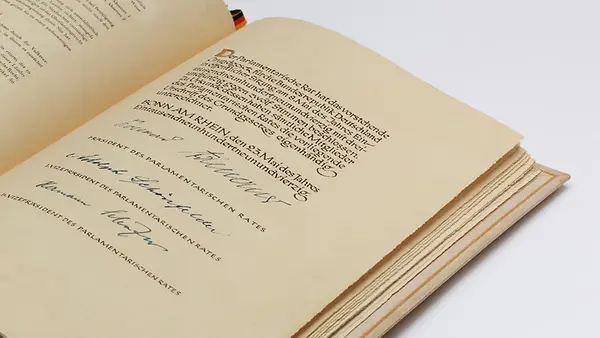 Der Parlamentarische Rat hat das vorstehende
Grundgesetz für die Bundesrepublik Deutschland
in öffentlicher Sitzung am 8. Mai des Jahres Ein-
tausendneunhundertneunundvierzig mit drei-
undfünfzig gegen zwölf Stimmen beschlossen.
Zu Urkunde dessen haben sämtliche Mitglieder
des Parlamentarischen Rates die vorliegende
Urschrift des Grundgesetzes eigenhändig
unterzeichnet.
BONN AM RHEIN, den 23. Mai des Jahres
Eintausendneunhundertneunundvierzig.
Adenauer
PRÄSIDENT DES PARLAMENTARISCHEN RATES
Adolph Schönfelder
I. VIZEPRÄSIDENT DES PARLAMENTARISCHEN RATES
Hermann Schäfer
II. VIZEPRÄSIDENT DES PARLAMENTARISCHEN RATES